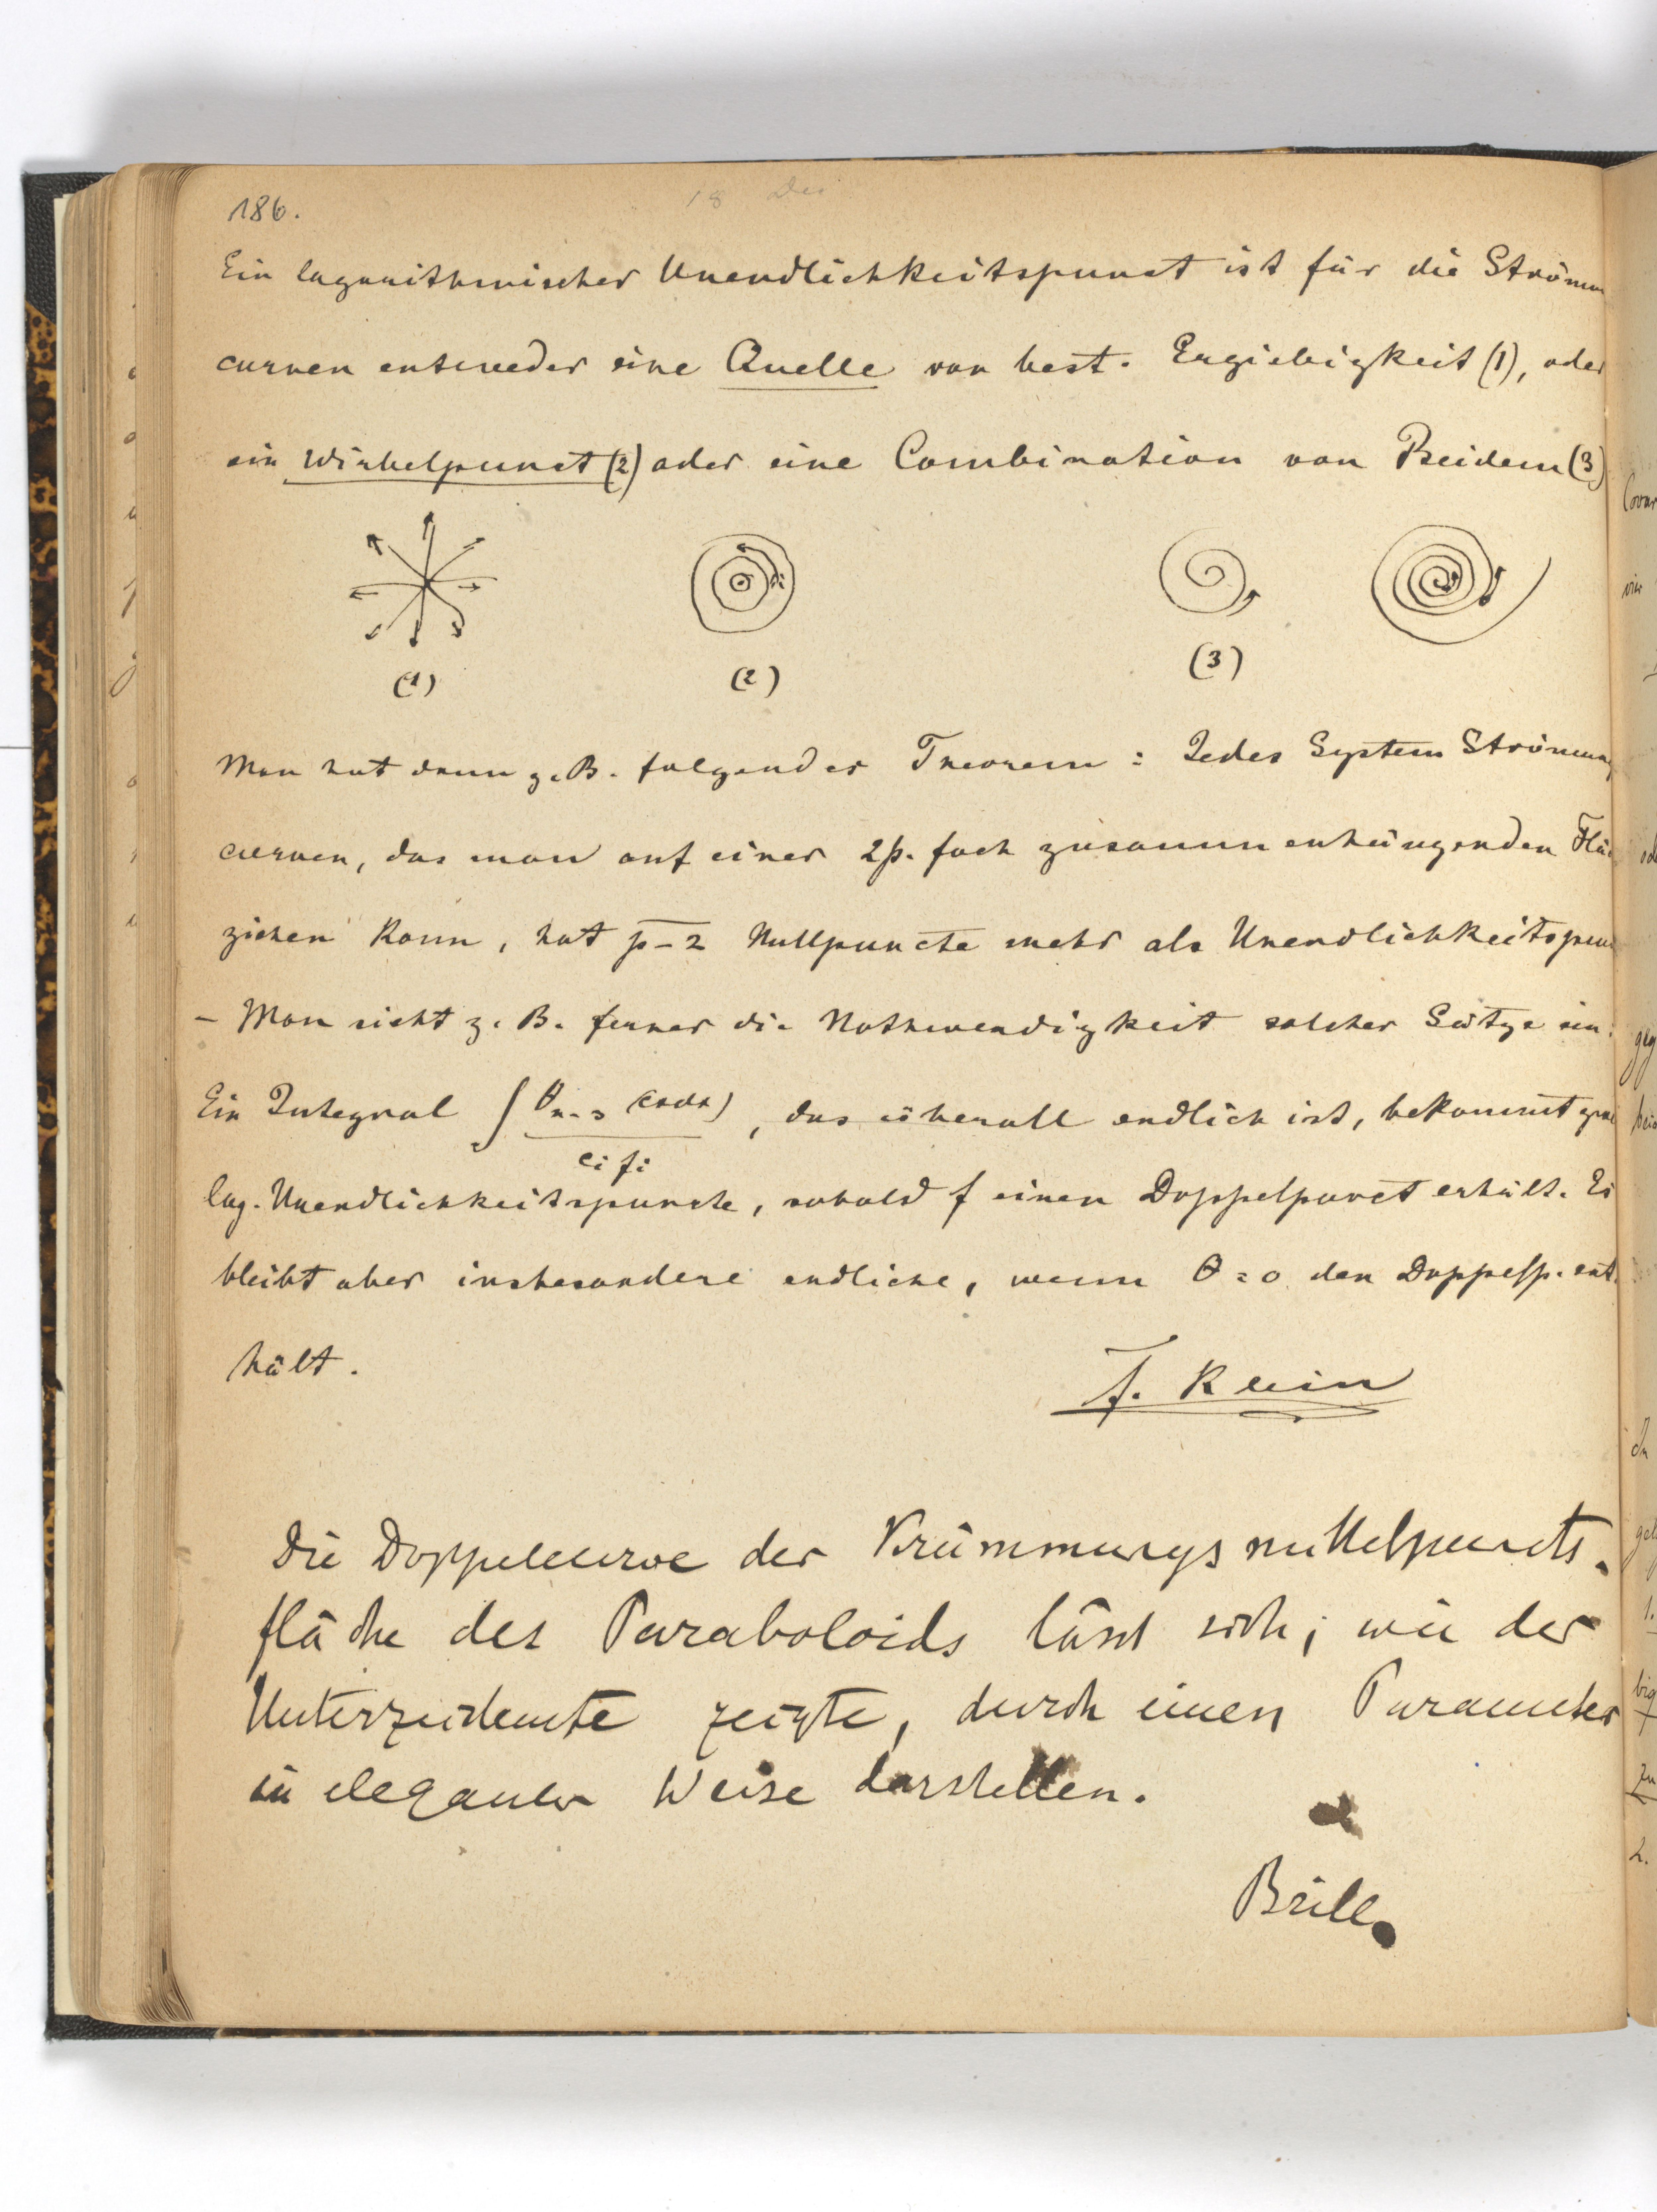 186.
18 Dec
Ein logarithmischer Unendlichkeitspunct ist für die Strömu
curven entweder eine Quelle von best. Ergiebigkeit (1), oder
ein Wirbelpunct (2) oder eine Combination von Beidem (3)
(1) (2) (3)
Man hat dann z. B. folgendes Theorem: Jedes System Strömung
curven, das man auf einer 2p. fach zusammenhängenden Flä
ziehen kann, hat p-2 Nullpuncte mehr als Unendlichkeitspun
- Man sieht z. B. ferner die Nothwendigkeit solcher Sätze ein.
Ein Integral ∫ θn-3 (cxdx) / ci fi, das überall endlich ist, bekommt
log. Unendlichkeitspuncte, sobald f einen Doppelpunct erhält. Es
bleibt aber insbesondere endliche, wenn θ=0 den Doppelp. ent
hält.
F. Klein
Die Doppelcurve der Krümmungsmittelpuncts-
fläche des Paraboloids lässt sich, wie der
Unterzeichnete zeigte, durch einen Parameter
in eleganter Weise darstellen.
Brill.